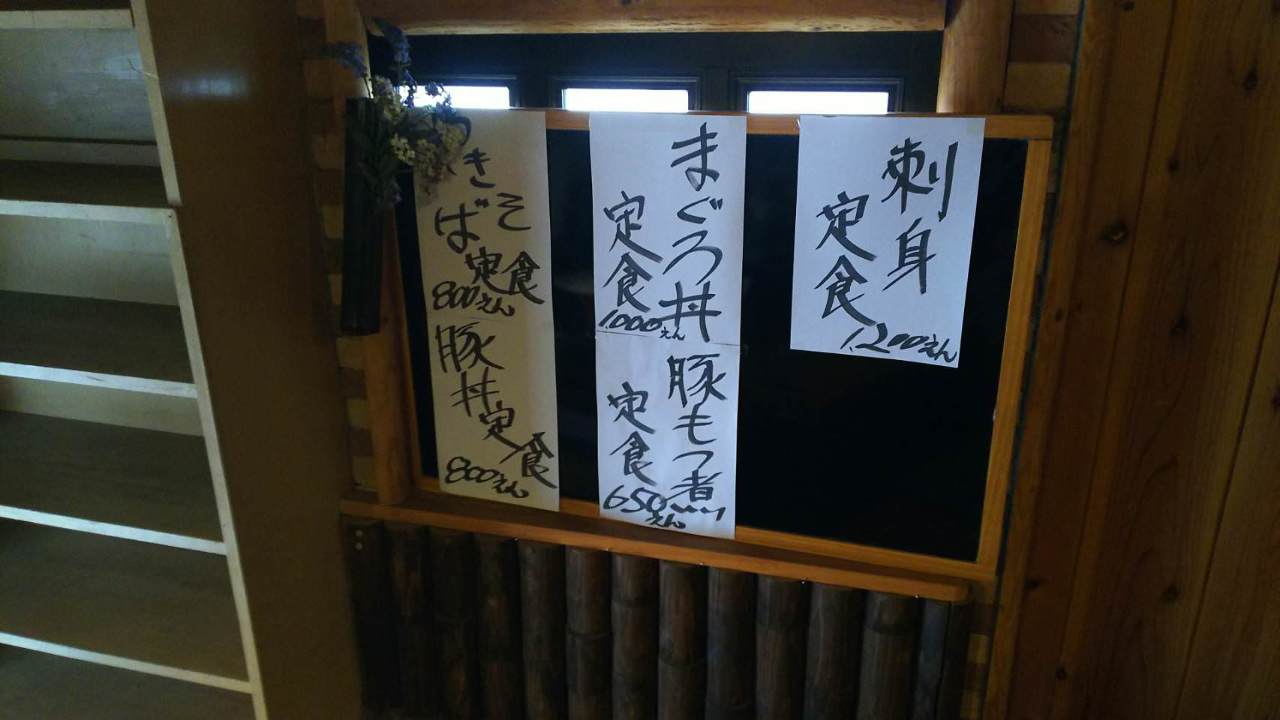 刺身
定食
1,200えん
まぐろ丼
定食
1,000えん
豚もつ煮
定食
650えん
きそば
定食
800えん
豚丼定食
800えん